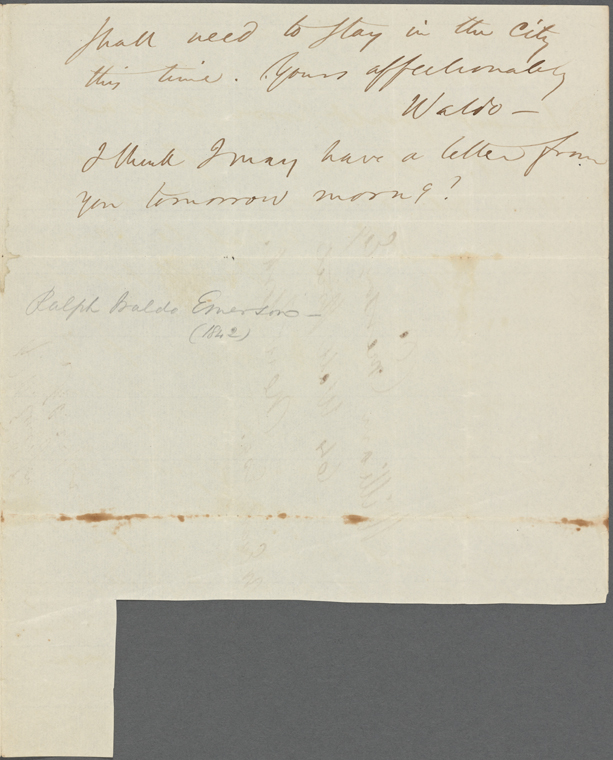 shall need to stay in the city
this time. Yours affectionately
Waldo —
I think I may have a letter from
you tomorrow morng?
Ralph Waldo Emerson —
(1842)